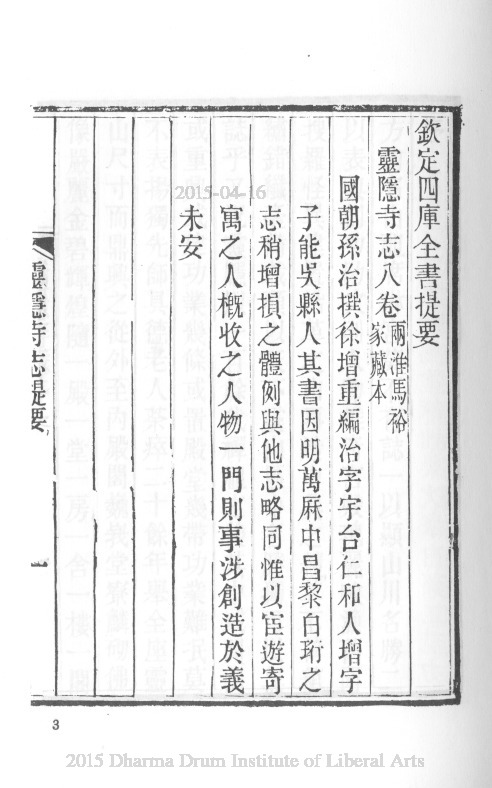 欽定四庫全書提要
靈隱寺志八卷兩淮馬裕
家藏本
國朝孫治撰徐增重編治字宇台仁和人增字
子能吳縣人其書因明萬厤中昌黎白珩之
志稍增損之體例與他志略同惟以宦遊寄
寓之人槪收之人物一門則事涉創造於義
未安
靈隱寺志提要
一
2015-04-16
3
2015 Dharma Drum Institute of Liberal Arts